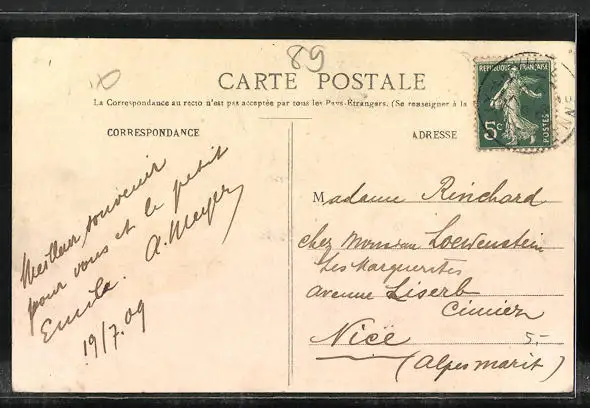 89
CARTE POSTALE
La Correspondance au recto n'est pas acceptée par tous les Pays-Étrangers. (Se renseigner à la
CORRESPONDANCE
ADRESSE
RÉPUBLIQUE FRANÇAISE
5c
POSTES
Meilleur souvenir
pour vous et le petit
Emile. A. Meyer
19/7.09
Madame Rinchard
chez Monsieur Loewenstein
Les Marguerites
avenue Liserb
Cimiez
Nice
(Alpes marit)
5.-